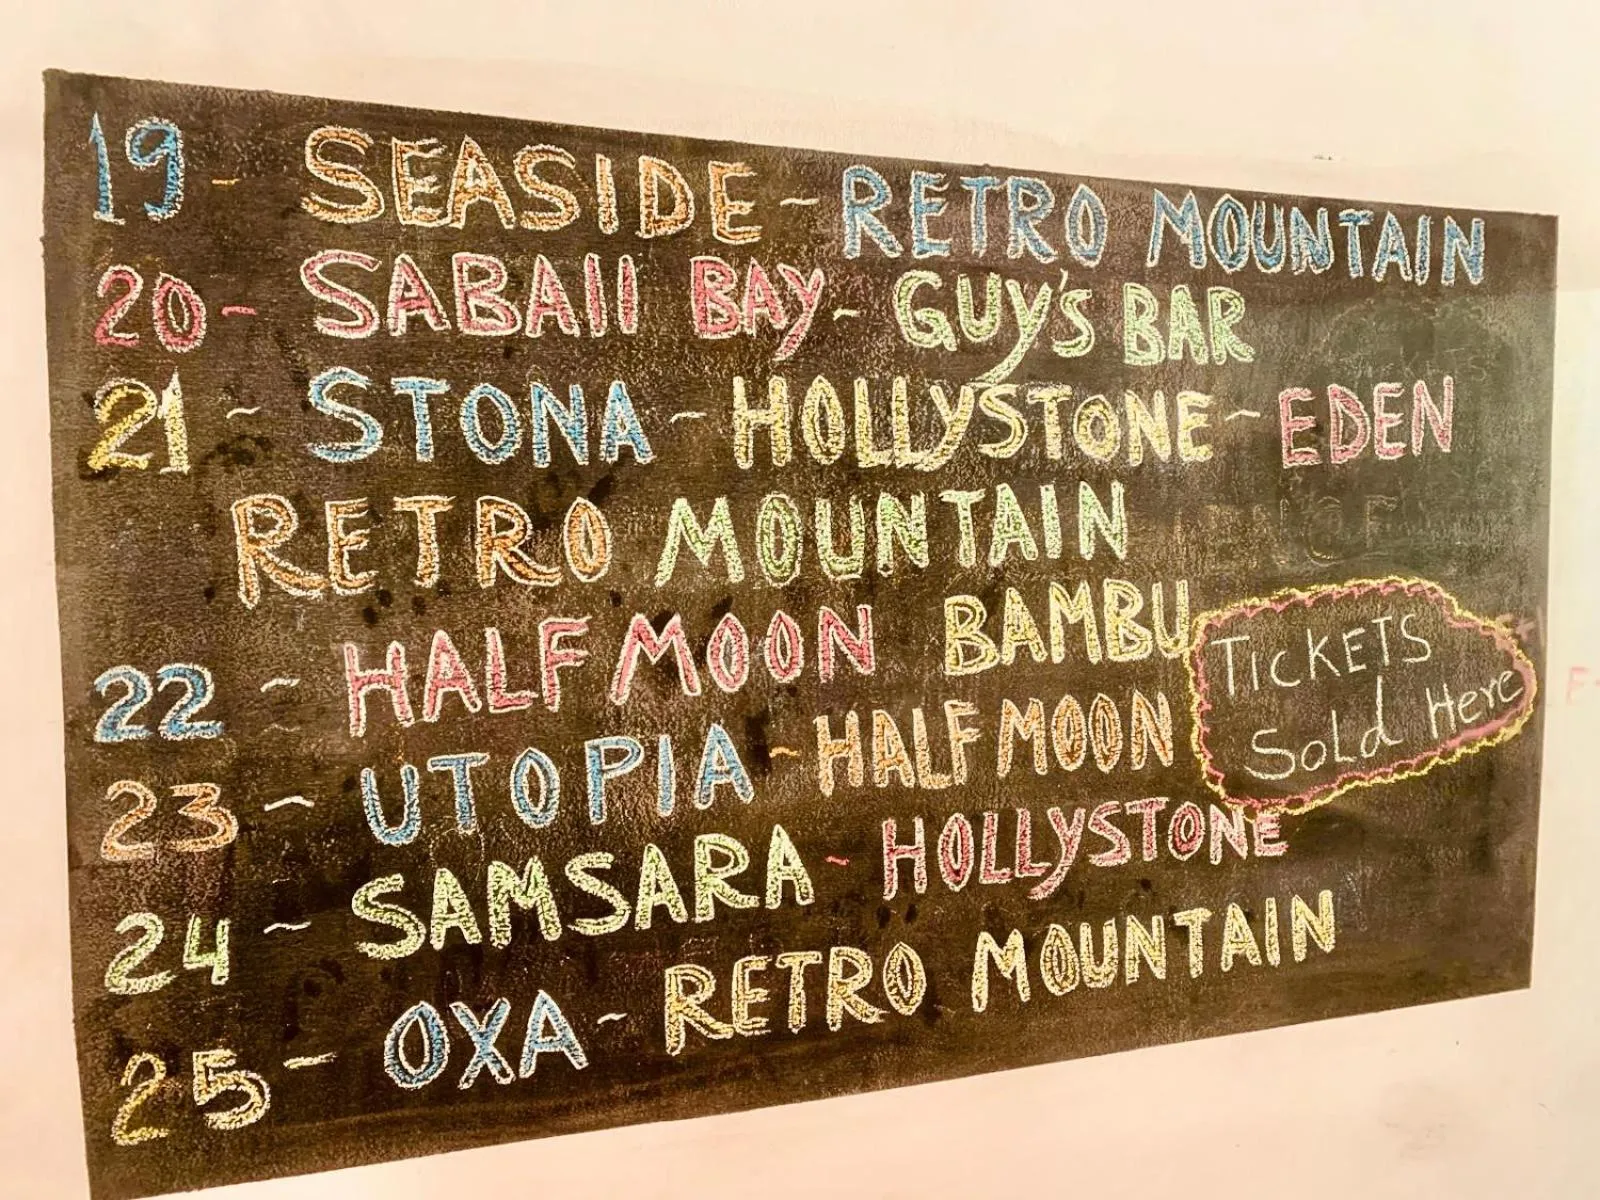 19 - SEASIDE - RETRO MOUNTAIN
20 - SABAII BAY - GUY'S BAR
21 - STONA - HOLLYSTONE - EDEN
RETRO MOUNTAIN
22 - HALF MOON BAMBU
23 - UTOPIA - HALF MOON
24 - SAMSARA - HOLLYSTONE
25 - OXA - RETRO MOUNTAIN
TICKETS
SoLd Here